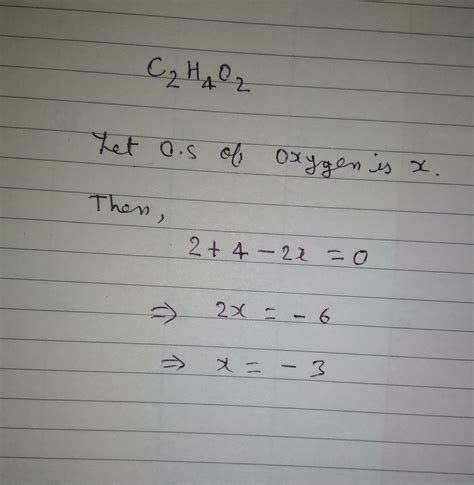 C₂H₄O₂
Let O.S of oxygen is x.
Then,
2 + 4 − 2x = 0
⇒ 2x = − 6
⇒ x = − 3